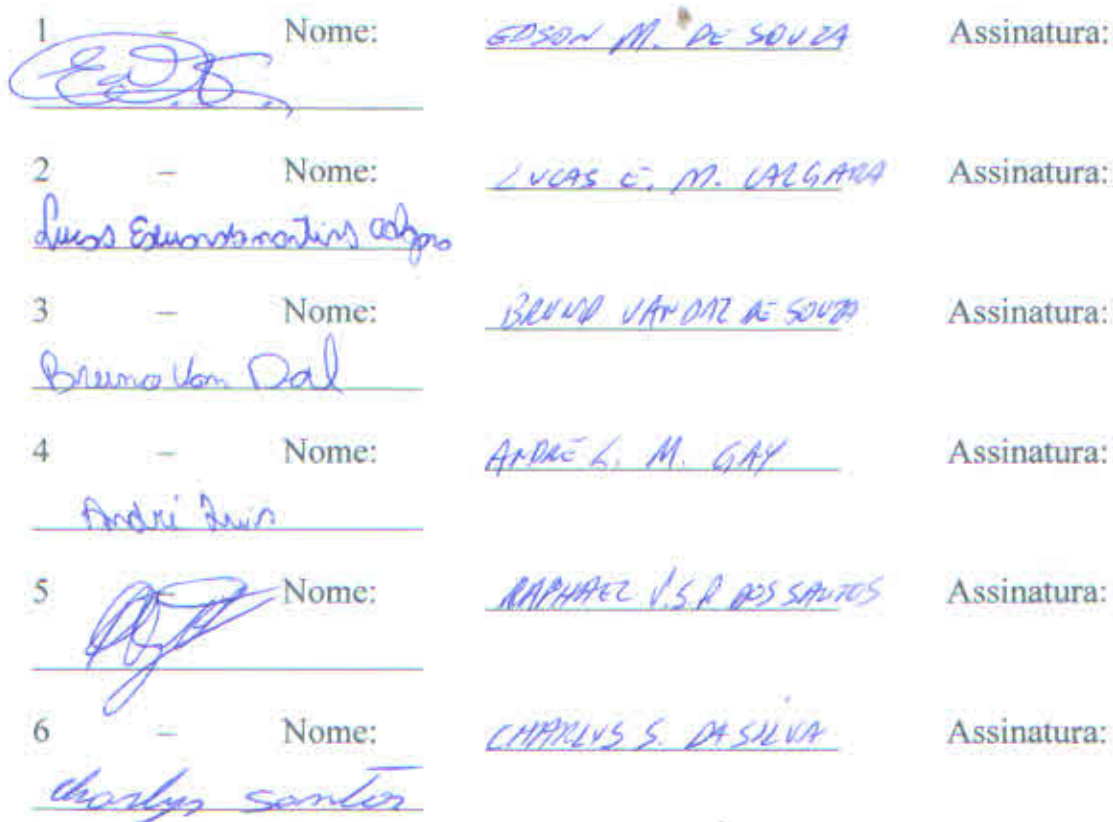 1 – Nome: EDSON M. DE SOUZA Assinatura:
2 – Nome: LUCAS E. M. CALGARA Assinatura:
Lucas Eduardo martins
3 – Nome: BRUNO VAN DAL DE SOUZA Assinatura:
Bruno Van Dal
4 – Nome: ANDRÉ L. M. GAY Assinatura:
André Luis
5 – Nome: RAPHAEL V.S.R DOS SANTOS Assinatura:
6 – Nome: CHARLYS S. DA SILVA Assinatura:
Charlys Santos